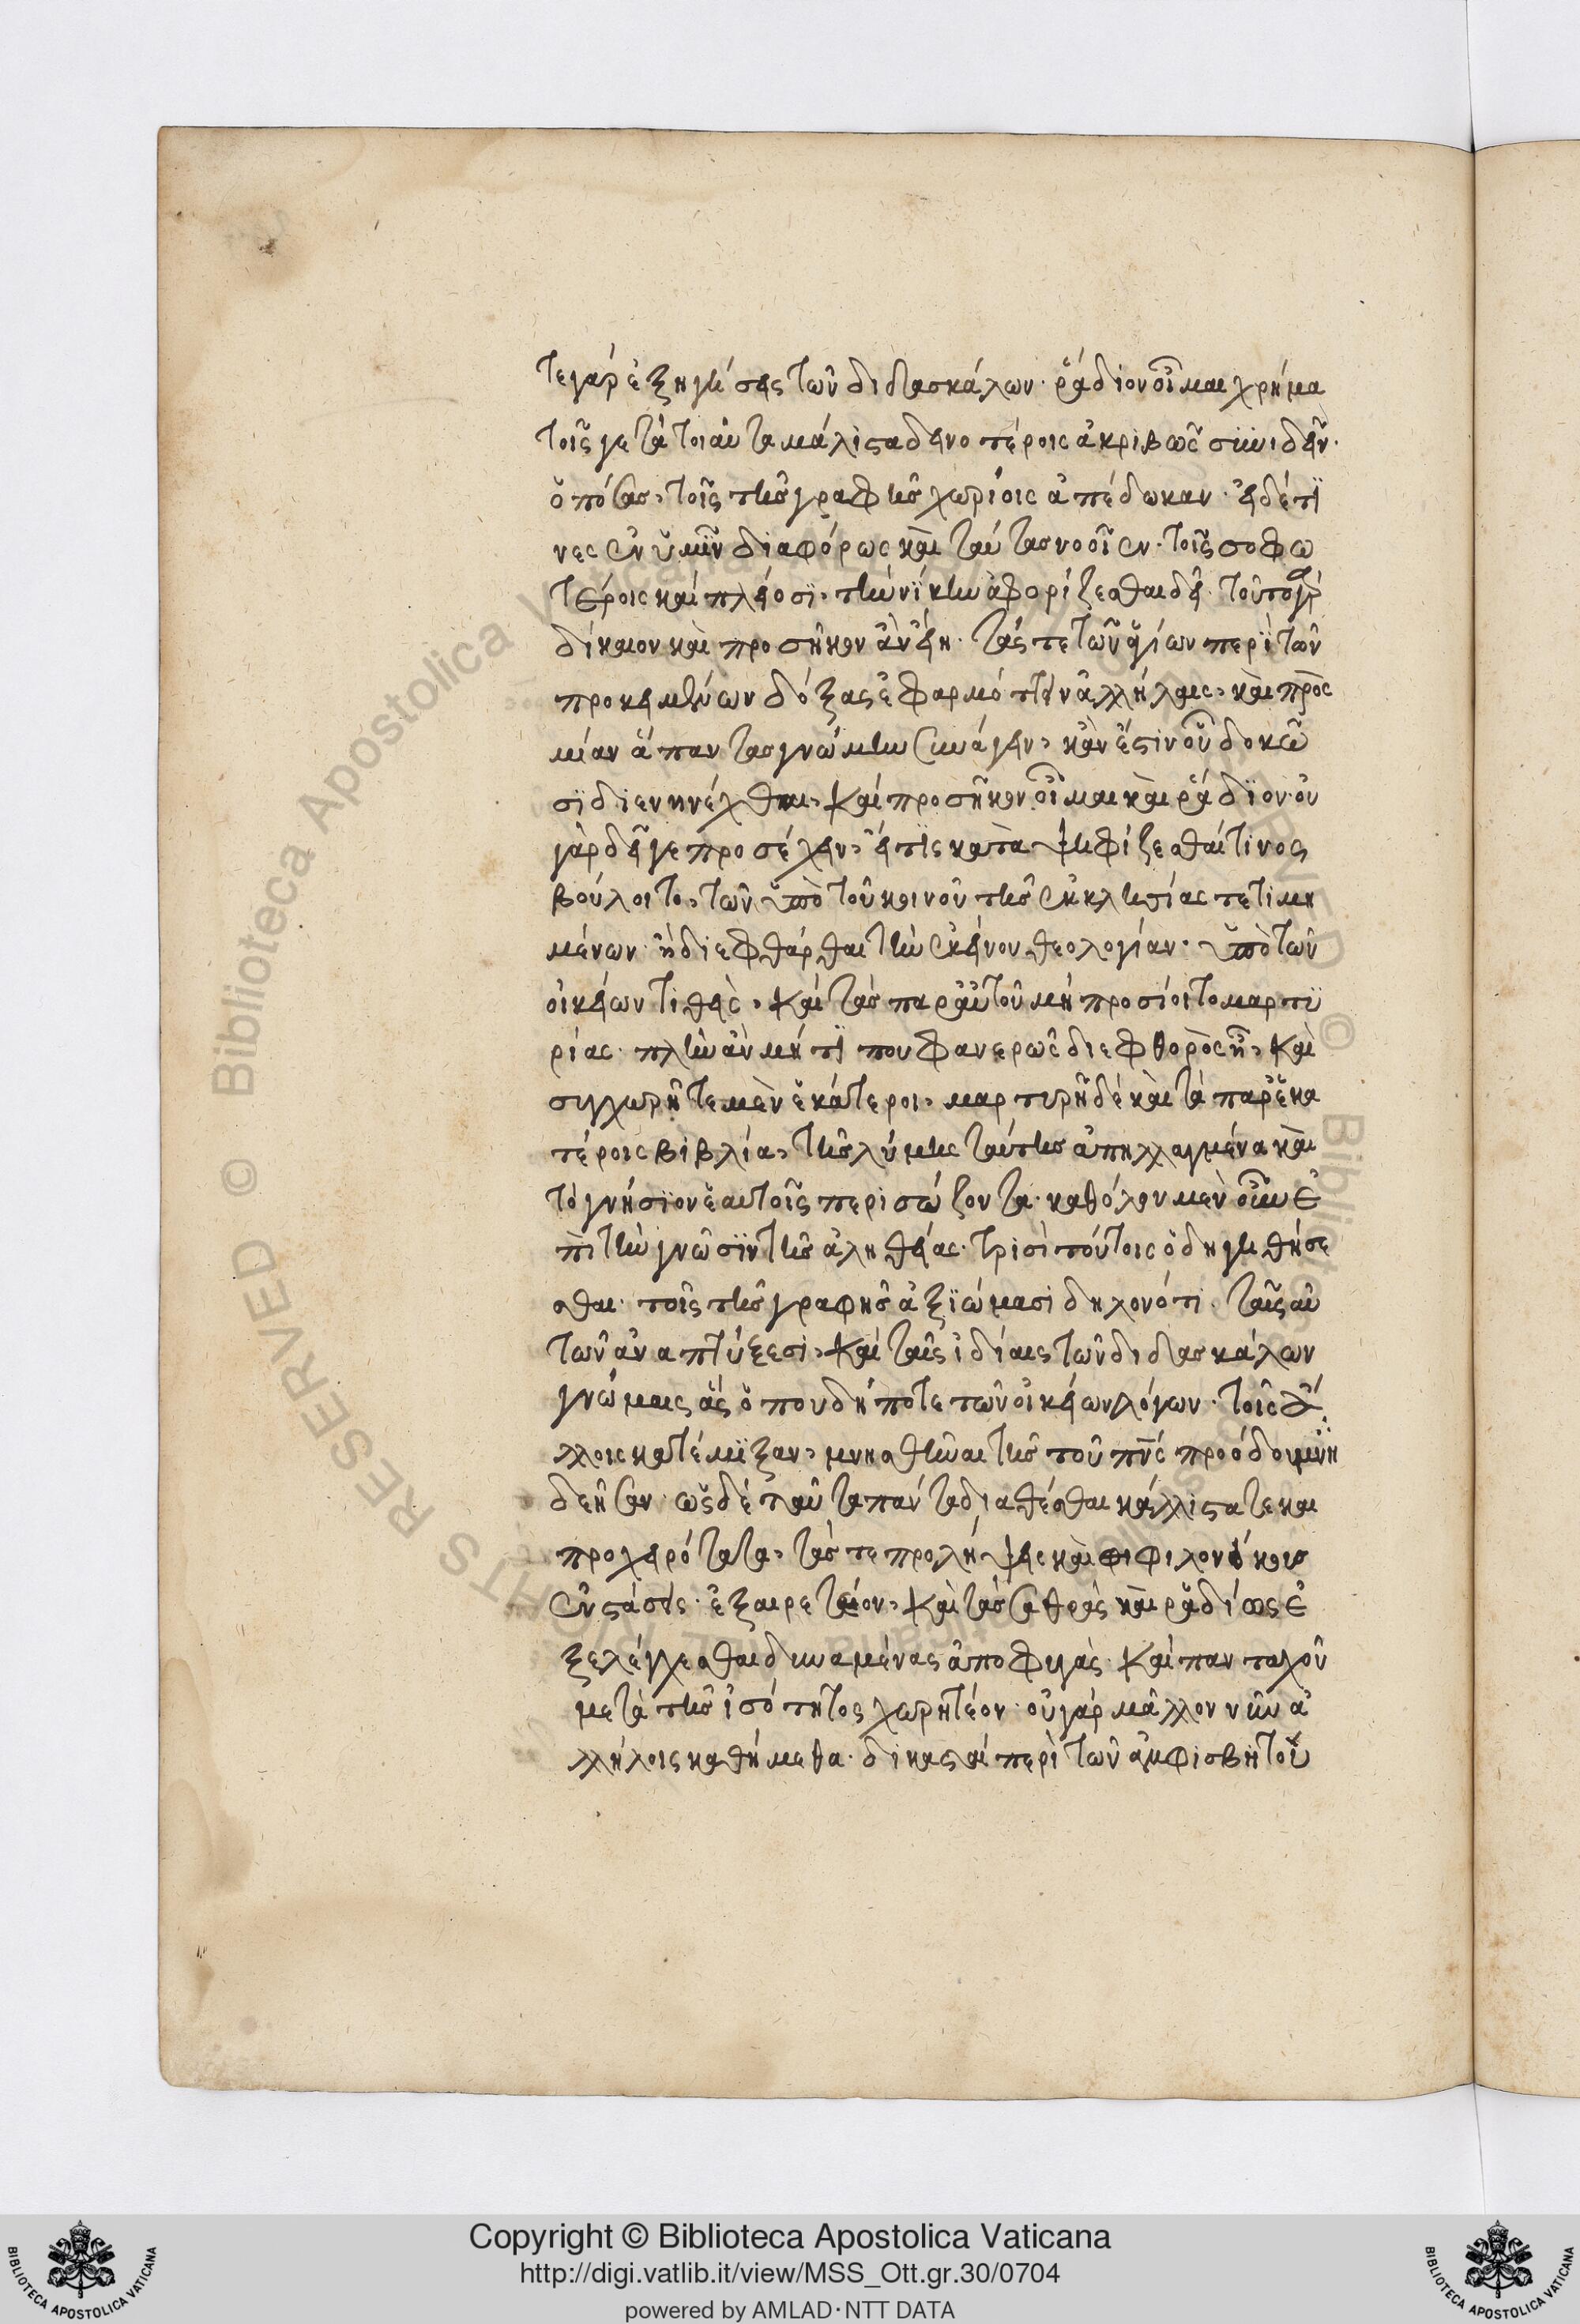 τε γὰρ ἐξηγήσεις τῶν διδασκάλων· ῥάδιον οἶμαι χρῆμα
τοῖς γε τὰ τοιαῦτα μάλιστα δεινοτέροις ἀκριβῶς συνιδεῖν·
ὁπόσας, τοῖς τῆς γραφῆς χωρίοις ἀπέδωκαν· εἰ δέ τι
νες ἐν ὑμῖν διαφόρως καὶ ταύτας νοοῖεν· τοῖς σοφω
τέροις καὶ πλείοσι, τὴν νίκην ἀφορίζεσθαι δεῖ· τοῦτο γὰρ
δίκαιον καὶ προσῆκον ἂν εἴη· τάς τε τῶν ἁγίων περὶ τῶν
προκειμένων δόξας ἐφαρμόττειν ἀλλήλαις, καὶ πρὸς
μίαν ἅπαντας γνώμην συνάγειν, κἂν ἔστιν οὗ δοκῶ
σι διενηνέχθαι, καὶ προσῆκον οἶμαι καὶ ῥάδιον· οὐ
γὰρ δεῖ γε προσέχειν, εἴ τις καταψηφίζεσθαί τινος
βούλοιτο, τῶν ὑπὸ τοῦ κοινοῦ τῆς ἐκκλησίας τετιμη
μένων· ἢ διεφθάρθαι τὴν ἐκείνου θεολογίαν· ὑπὸ τῶν
οἰκείων τιθεὶς, καὶ τὰς παρ' αὐτοῦ μὴ προσίοιτο μαρτυ
ρίας· πλὴν ἂν μή τι που φανερῶς διεφθορὸς ᾖ, καὶ
συγχωρῆτε μὲν ἑκάτεροι, μαρτυρῇ δὲ καὶ τὰ παρ' ἑκα
τέροις βιβλία, τῆς λύμης ταύτης ἀπηλλαγμένα καὶ
τὸ γνήσιον ἑαυτοῖς περισώζοντα· καθόλου μὲν οὖν ἐ
πὶ τὴν γνῶσιν τῆς ἀληθείας· τρισὶ τούτοις ὁδηγηθήσε
σθαι· τοῖς τῆς γραφῆς ἀξιώμασι δηλονότι· ταῖς αὐ
τῶν ἀναπτύξεσι, καὶ ταῖς ἰδίαις τῶν διδασκάλων
γνώμαις ἃς ὁπουδήποτε τῶν οἰκείων λόγων· τοῖς ἄ
λλοις κατέμιξαν, μνησθῆναι τῆς τοῦ πνς προόδου μὴ
δεῆσαν· ὡς δὲ ταῦτα πάντα διαθέσθαι κάλλιστά τε καὶ
προχειρότατα, τάς τε προλήψεις καὶ φιφιλονείκους
ἐνστάσεις· ἐξαιρεταίον, καὶ τὰς σαθρὰς καὶ ῥᾳδίως ἐ
ξελέγχεσθαι δυναμένας ἀποφυγὰς· καὶ πανταχοῦ
μετὰ τῆς ἰσότητος χωρητέον· οὐ γὰρ μᾶλλον νῦν ἀ
λλήλοις καθήμεθα· δικασταὶ περὶ τῶν ἀμφισβητου